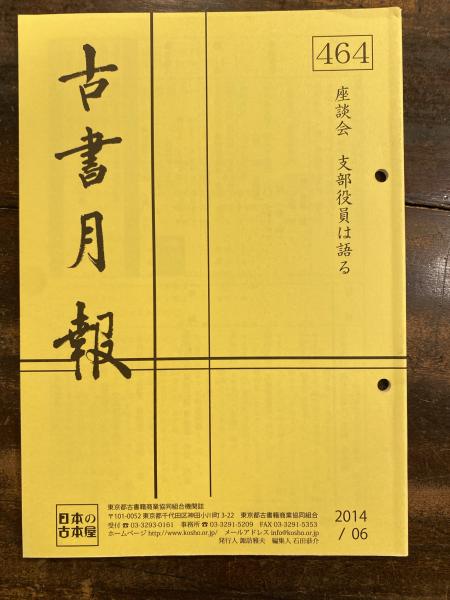 464
座談会 支部役員は語る
古書月報
日本の
古本屋
東京都古書籍商業協同組合機関誌
〒101-0052 東京都千代田区神田小川町 3-22 東京都古書籍商業協同組合
受付 ☎ 03-3293-0161 事務所 ☎ 03-3291-5209 FAX 03-3291-5353
ホームページ http://www.kosho.or.jp/ メールアドレス info@kosho.or.jp
発行人 諏訪雅夫 編集人 石田恭介
2014
/ 06